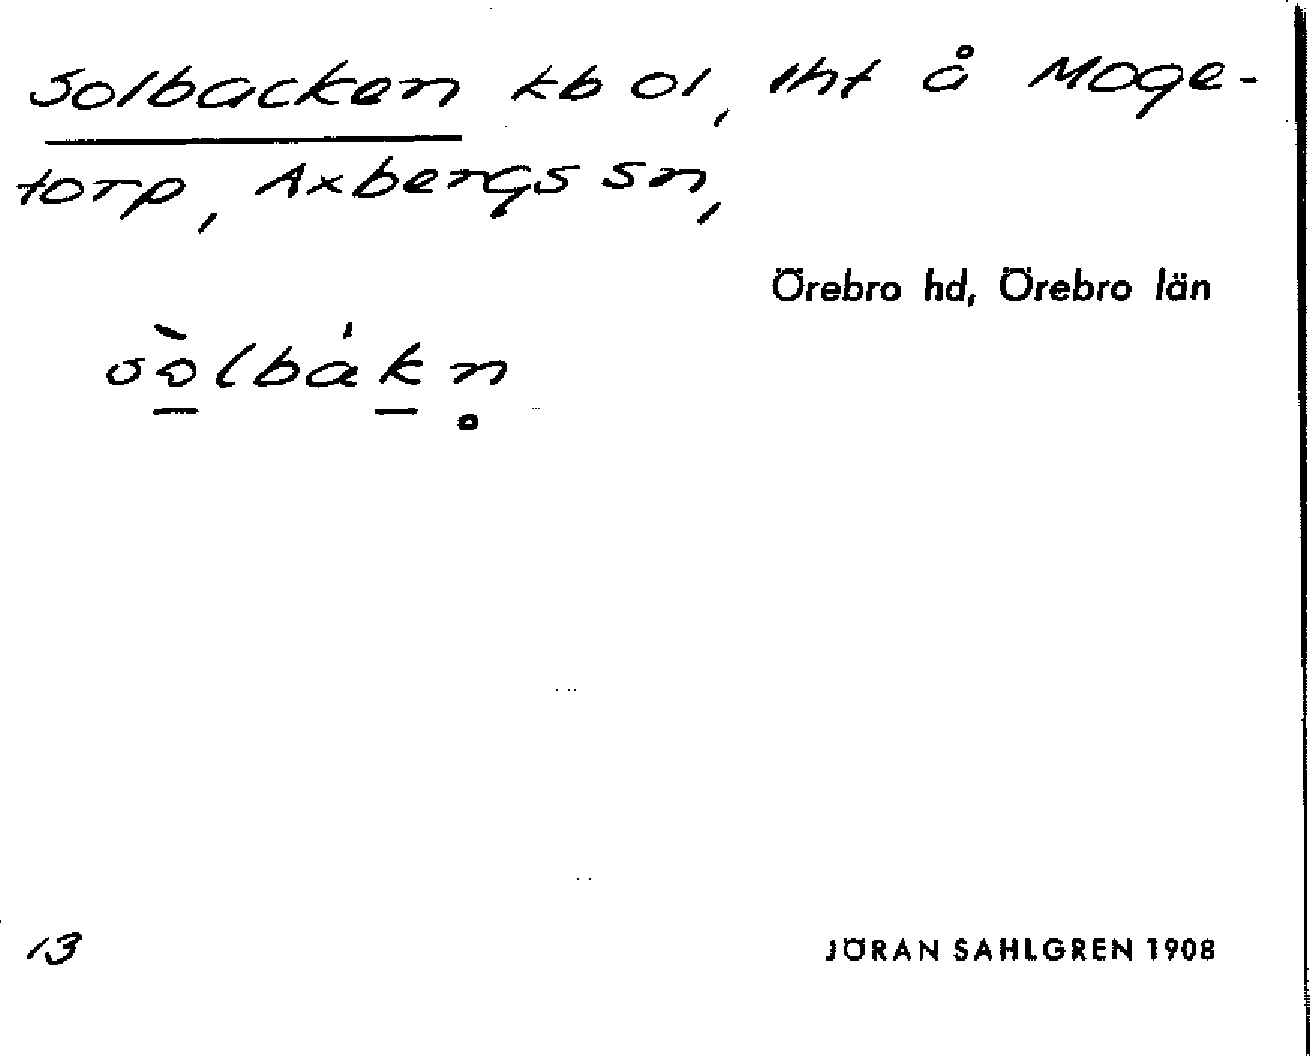 Solbacken kb ol, lht å Moge-
torp, Axbergs sn,
Örebro hd, Örebro län
sò̱lbáḵn̥
13
JÖRAN SAHLGREN 1908